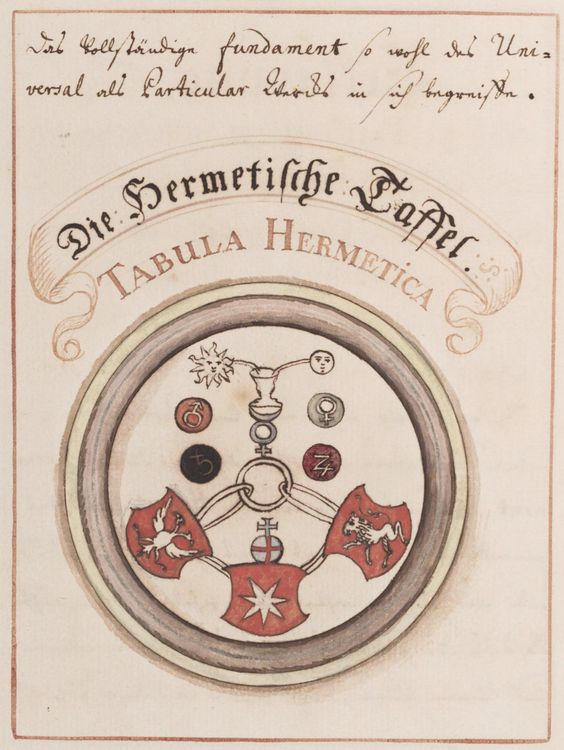 Das Vollständige fundament so wohl des Uni=
versal als Particular Wercks in sich begreiffe.
Die: Hermetische: Taffel.:S:
TABULA HERMETICA